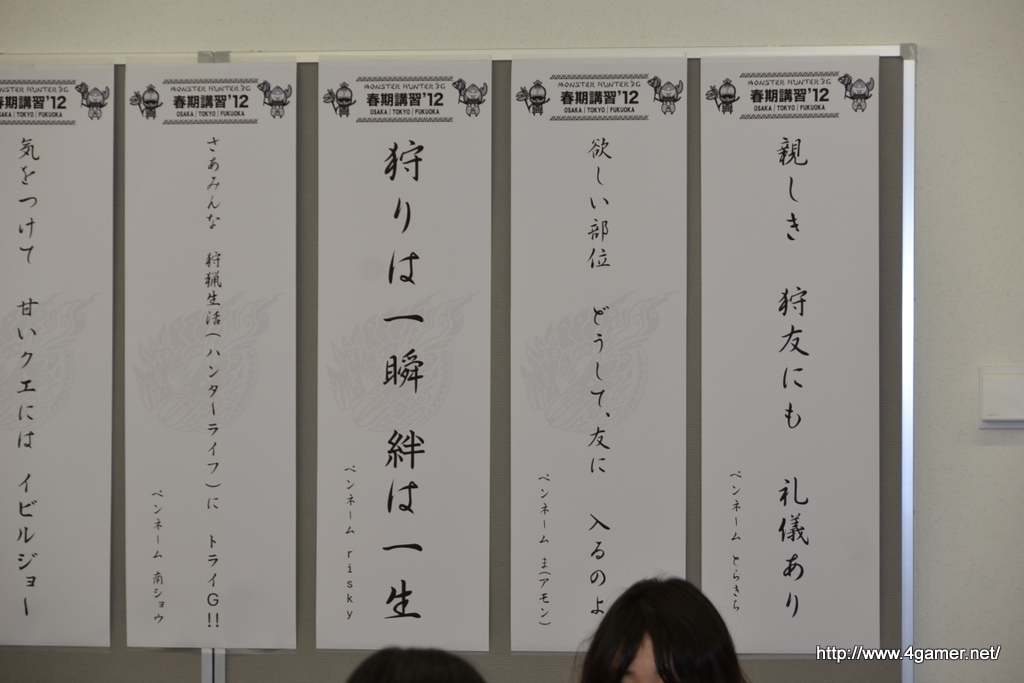 MONSTER HUNTER 3G
春期講習'12
OSAKA | TOKYO | FUKUOKA
親しき 狩友にも 礼儀あり
ペンネーム とらきち
MONSTER HUNTER 3G
春期講習'12
OSAKA | TOKYO | FUKUOKA
欲しい部位 どうして、友に 入るのよ
ペンネーム ま(アモン)
MONSTER HUNTER 3G
春期講習'12
OSAKA | TOKYO | FUKUOKA
狩りは一瞬 絆は一生
ペンネーム risky
MONSTER HUNTER 3G
春期講習'12
OSAKA | TOKYO | FUKUOKA
さあみんな 狩猟生活(ハンターライフ)に トライG!!
ペンネーム 南ショウ
MONSTER HUNTER 3G
期講習'12
OSAKA | TOKYO | FUKUOKA
気をつけて 甘いクエには イビルジョー
http://www.4gamer.net/